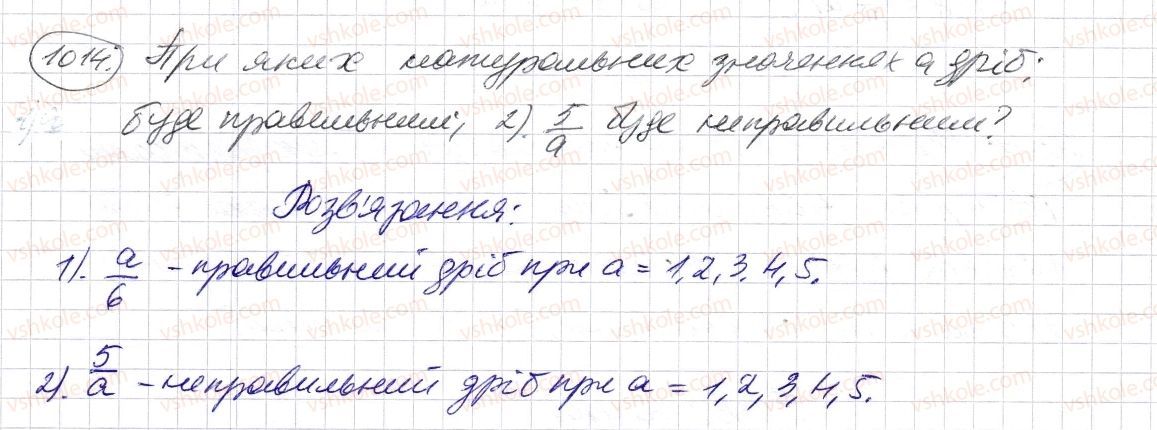 1014. При яких натуральних значеннях а дріб:
буде правильним; 2). 5/a буде неправильним?
Розв'язання:
1). a/6 - правильний дріб при a = 1,2,3,4,5.
2). 5/a - неправильний дріб при a = 1,2,3,4,5.